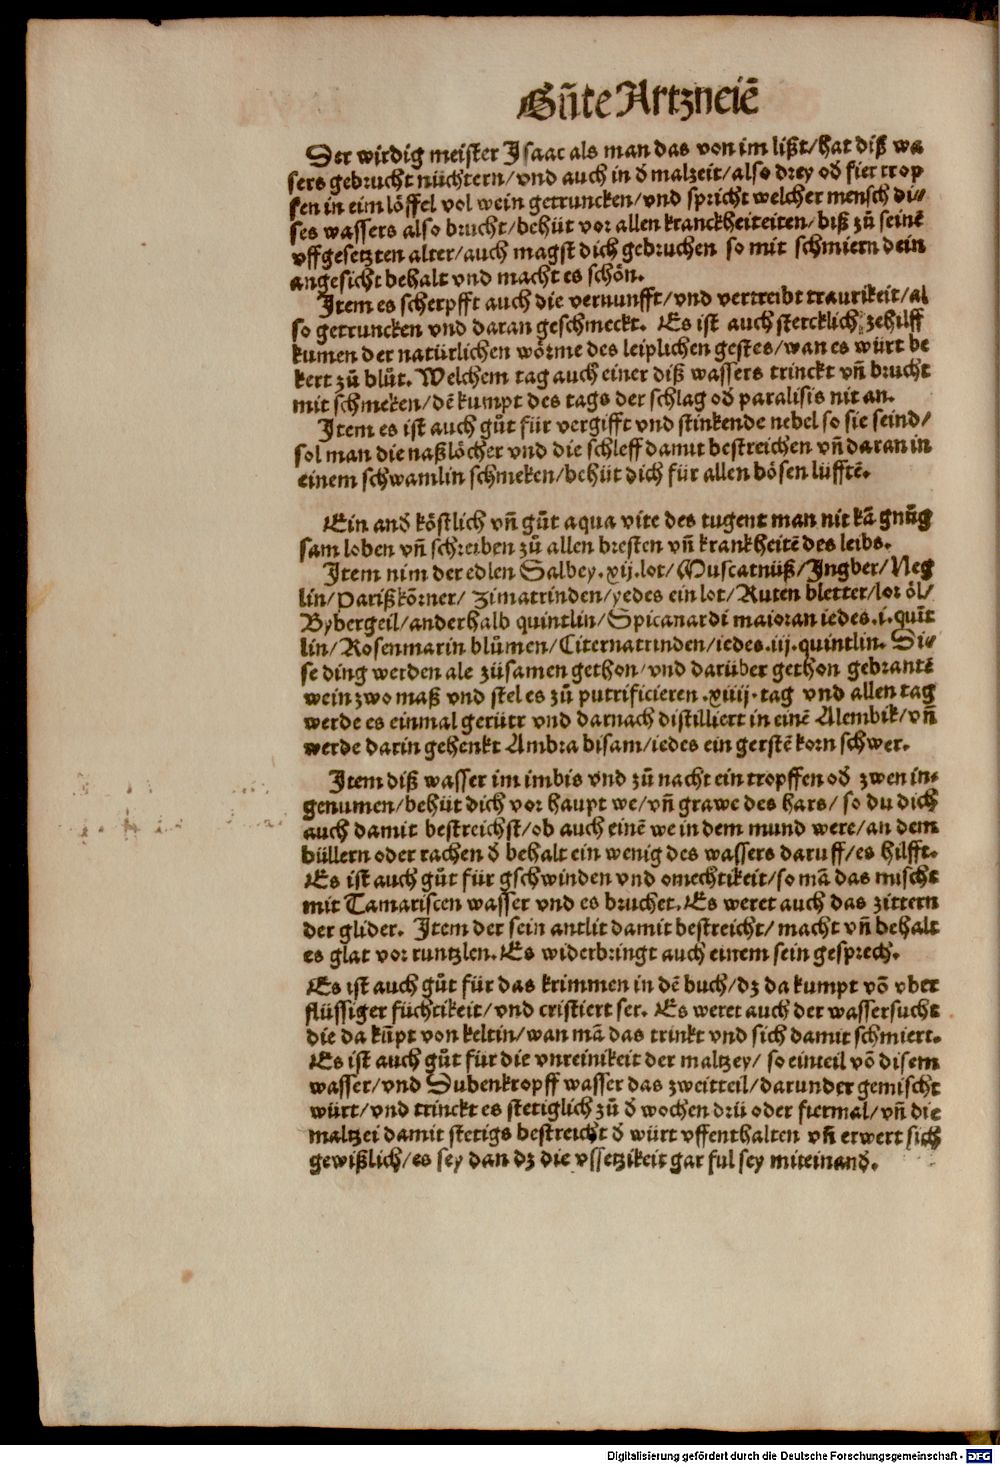 Gůte Artzneiē
Der wirdig meister Isaac als man das von im lißt/hat diß wa
sers gebrucht nüchtern/vnd auch in đ malzeit/also drey ođ fier trop
fen in eim löffel vol wein getruncken/vnd spricht welcher mensch di⸗
ses wassers also brucht/behüt vor allen kranckheiteiten/biß zů seinē
vffgesetzten alter/auch magst dich gebruchen so mit schmiern dein
angesicht behalt vnd macht es schön.
Item es scherpfft auch die vernunfft/vnd vertreibt traurikeit/al
so getruncken vnd daran geschmeckt. Es ist auch stercklich zehilff
kumen der natürlichen wörme des leiplichen gestes/wan es würt be
kert zů blůt. Welchem tag auch einer diß wassers trinckt vñ brucht
mit schmeken/dē kumpt des tags der schlag ođ paralisis nit an.
Item es ist auch gůt für vergifft vnd stinkende nebel so sie seind/
sol man die naßlöcher vnd die schleff damit bestreichen vñ daran in
einem schwamlin schmeken/behüt dich für allen bösen lüfftē.
Ein anđ köstlich vñ gůt aqua vite des tugent man nit kā gnůg
sam loben vñ schreiben zů allen bresten vñ krankheitē des leibs.
Item nim der edlen Salbey.xij.lot/Muscatnüß/Ingber/Neg
lin/Parißkörner/ Zimatrinden/yedes ein lot/Ruten bletter/lor öl/
Bybergeil/anderhalb quintlin/Spicanardi maioran iedes.i.quīt
lin/Rosenmarin blůmen/Citernatrinden/iedes.iij.quintlin. Di⸗
se ding werden ale zůsamen gethon/vnd darüber gethon gebrantē
wein zwo maß vnd stel es zů putrificieren .xiiij.tag vnd allen tag
werde es einmal gerütr vnd darnach distilliert in einē Alembik/vñ
werde darin gehenkt Ambra bisam/iedes ein gerstē korn schwer.
Item diß wasser im imbis vnd zů nacht ein tropffen ođ zwen in⸗
genumen/behüt dich vor haupt we/vñ grawe des hars/ so du dich
auch damit bestreichst/ob auch einē we in dem mund were/an dem
büllern oder rachen đ behalt ein wenig des wassers daruff/es hilfft.
Es ist auch gůt für gschwinden vnd omechtikeit/so mā das mischt
mit Tamariscen wasser vnd es bruchet. Es weret auch das zittern
der glider. Item der sein antlit damit bestreicht/ macht vñ behalt
es glat vor runtzlen. Es widerbringt auch einem sein gesprech.
Es ist auch gůt für das krimmen in dē buch/dz da kumpt vō vber
flüssiger füchtikeit/vnd cristiert ser. Es weret auch der wassersucht
die da kūpt von keltin/wan mā das trinkt vnd sich damit schmiert.
Es ist auch gůt für die vnreinikeit der maltzey/ so ein teil vō disem
wasser/vnd Dubenkropff wasser das zweitteil/darunder gemischt
würt/vnd trinckt es stetiglich zů đ wochen drü oder fiermal/vñ die
maltzei damit stetigs bestreicht đ würt vffenthalten vñ erwert sich
gewißlich/es sey dan dz die vssetzikeit gar ful sey miteinanđ.
Digitalisierung gefördert durch die Deutsche Forschungsgemeinschaft - DFG